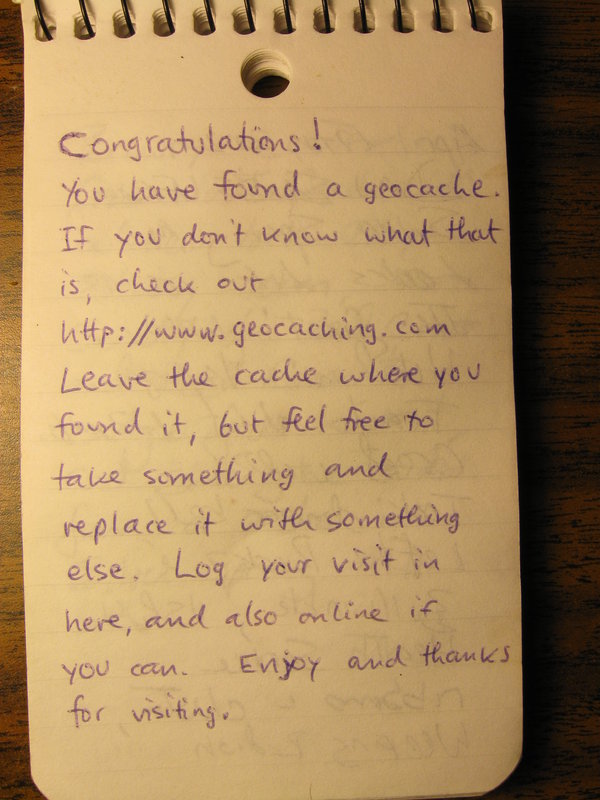 Congratulations!
You have found a geocache.
If you don't know what that
is, check out
http://www.geocaching.com
Leave the cache where you
found it, but feel free to
take something and
replace it with something
else. Log your visit in
here, and also online if
you can. Enjoy and thanks
for visiting.